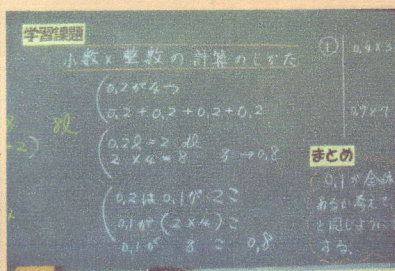 学習課題
小数×整数の計算のしかた
0.2が4つ
0.2+0.2+0.2+0.2
0.2ℓ=2 dℓ
2×4=8 8→0.8
0.2は0.1が2こ
0.1が(2×4)こ
0.1が 8こ 0.8
8ℓ
+2)
①
0.4×3
0.7×7
まとめ
0.1が
あるか考えて、
と同じように
する。